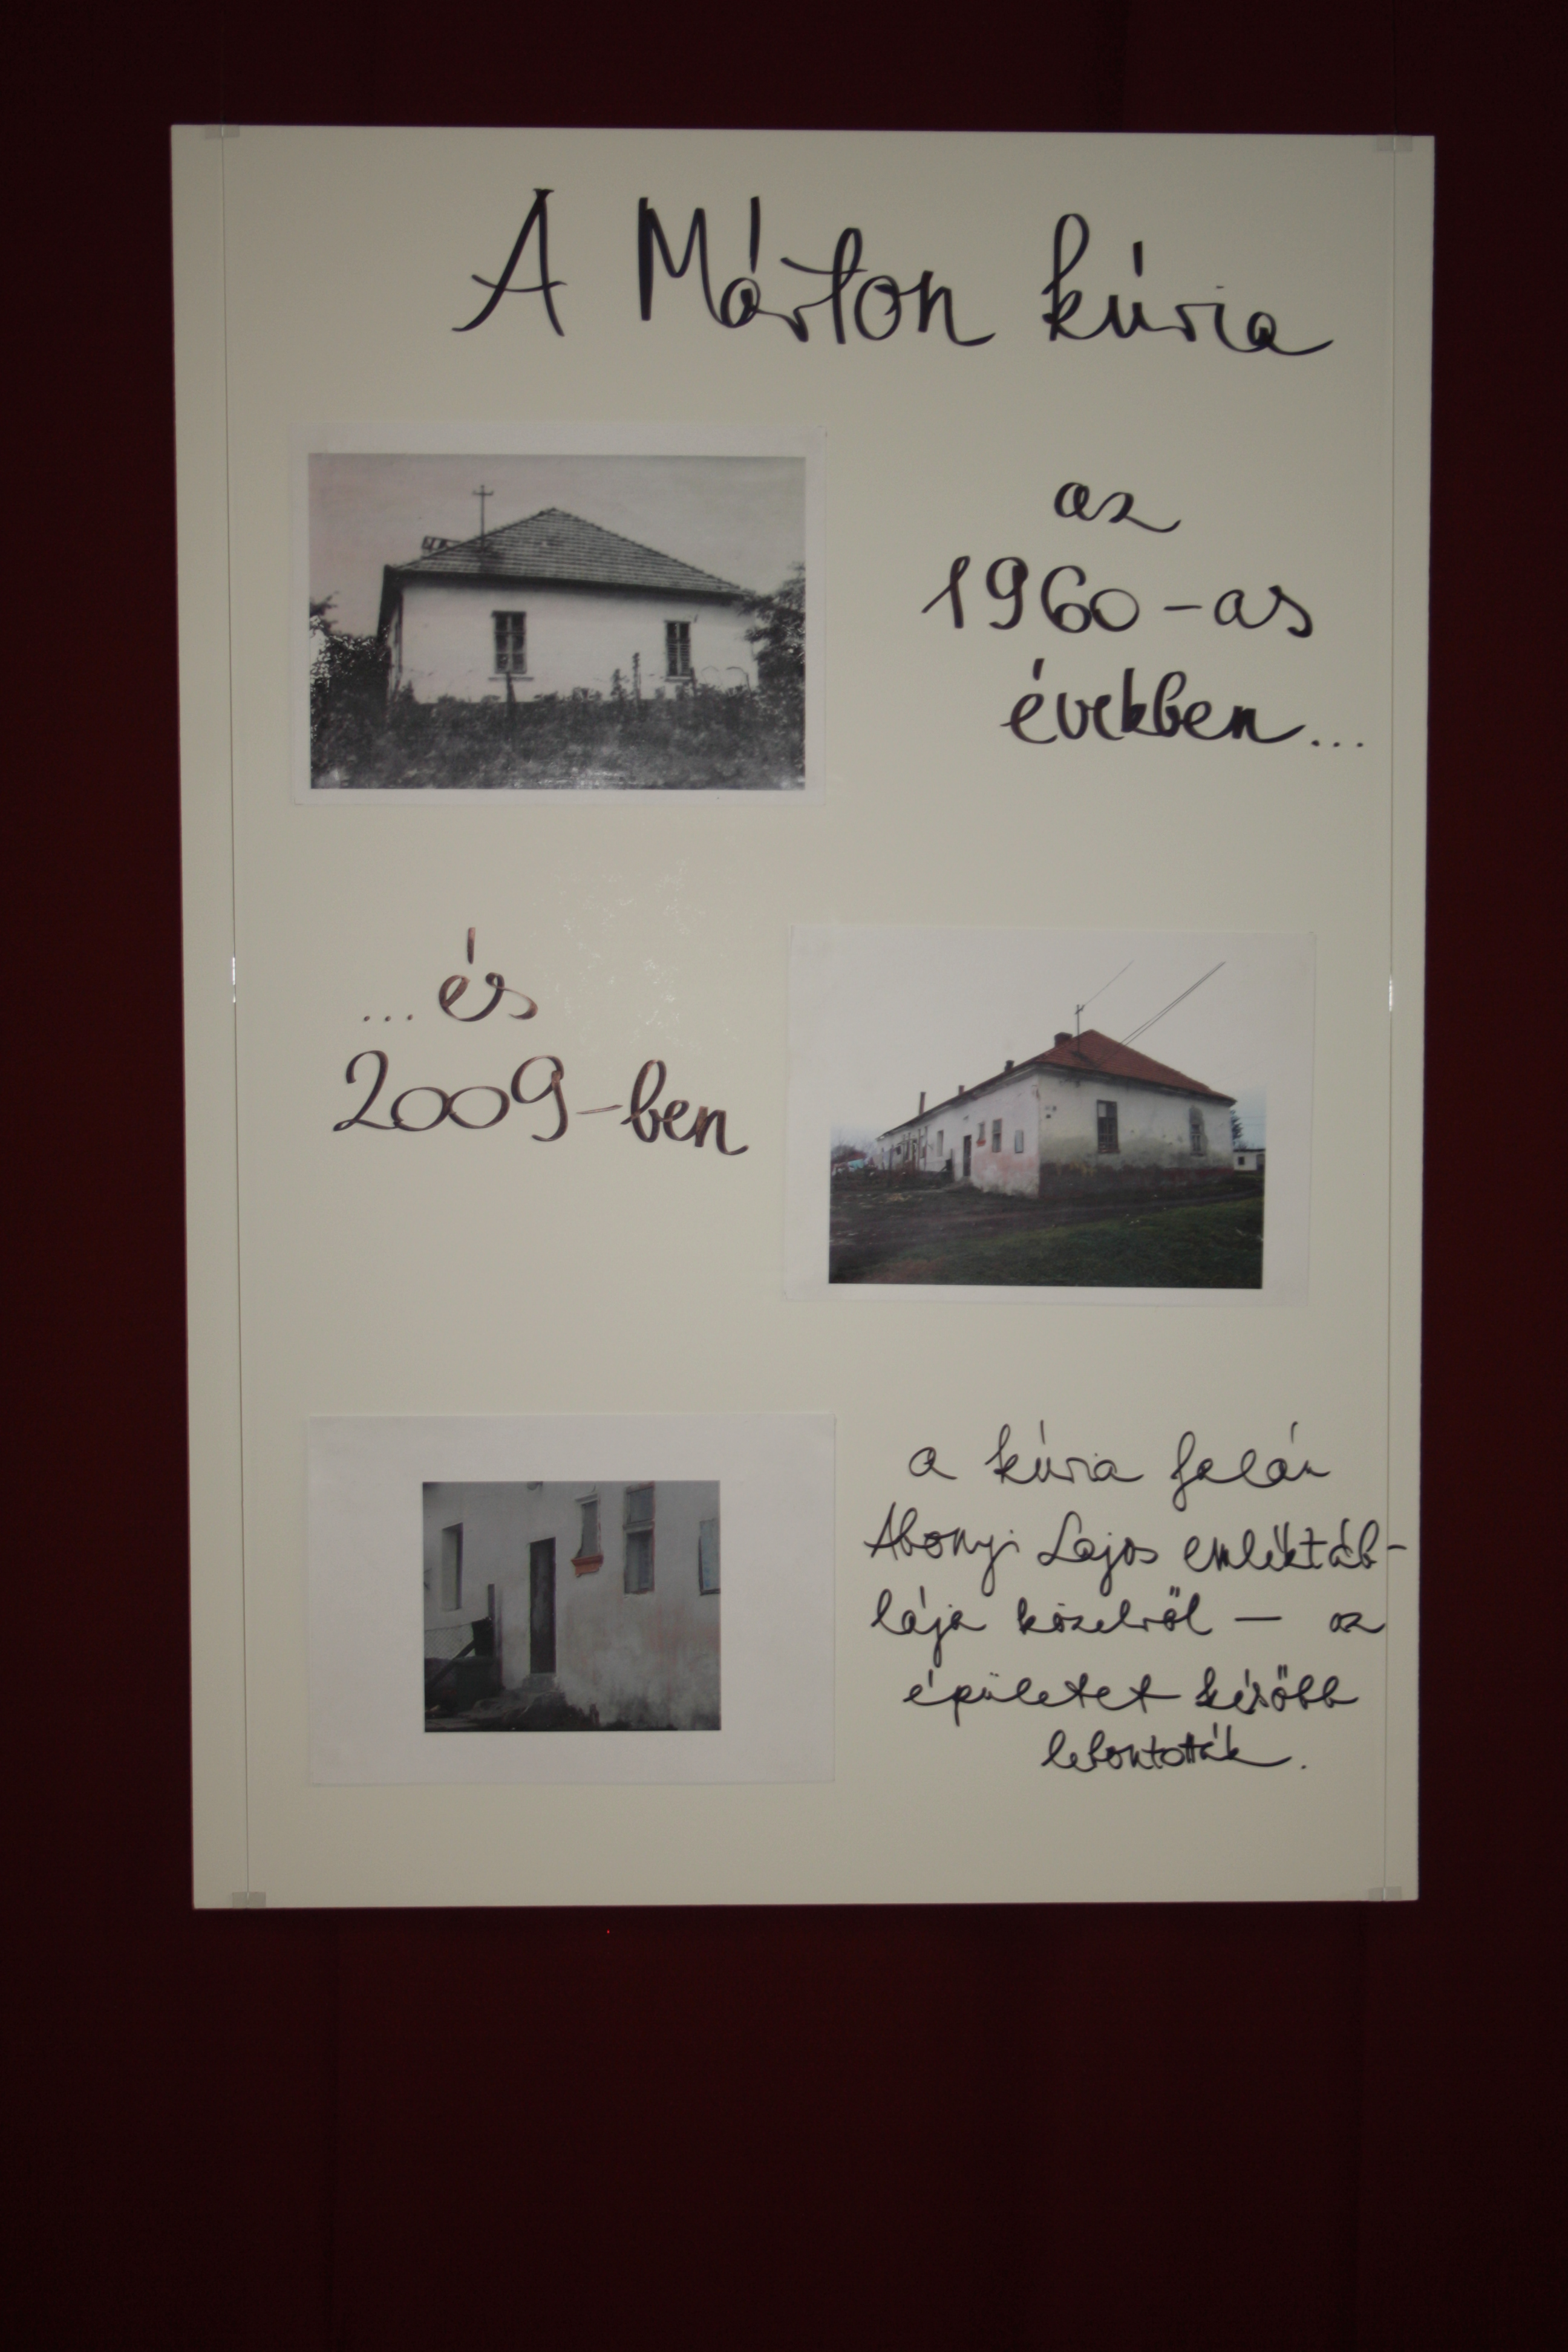 A Márton kúria
az
1960-as
években...
...és
2009-ben
a kúria falán
Abonyi Lajos emléktáb-
lája közelről — az
épületet később
lebontották.